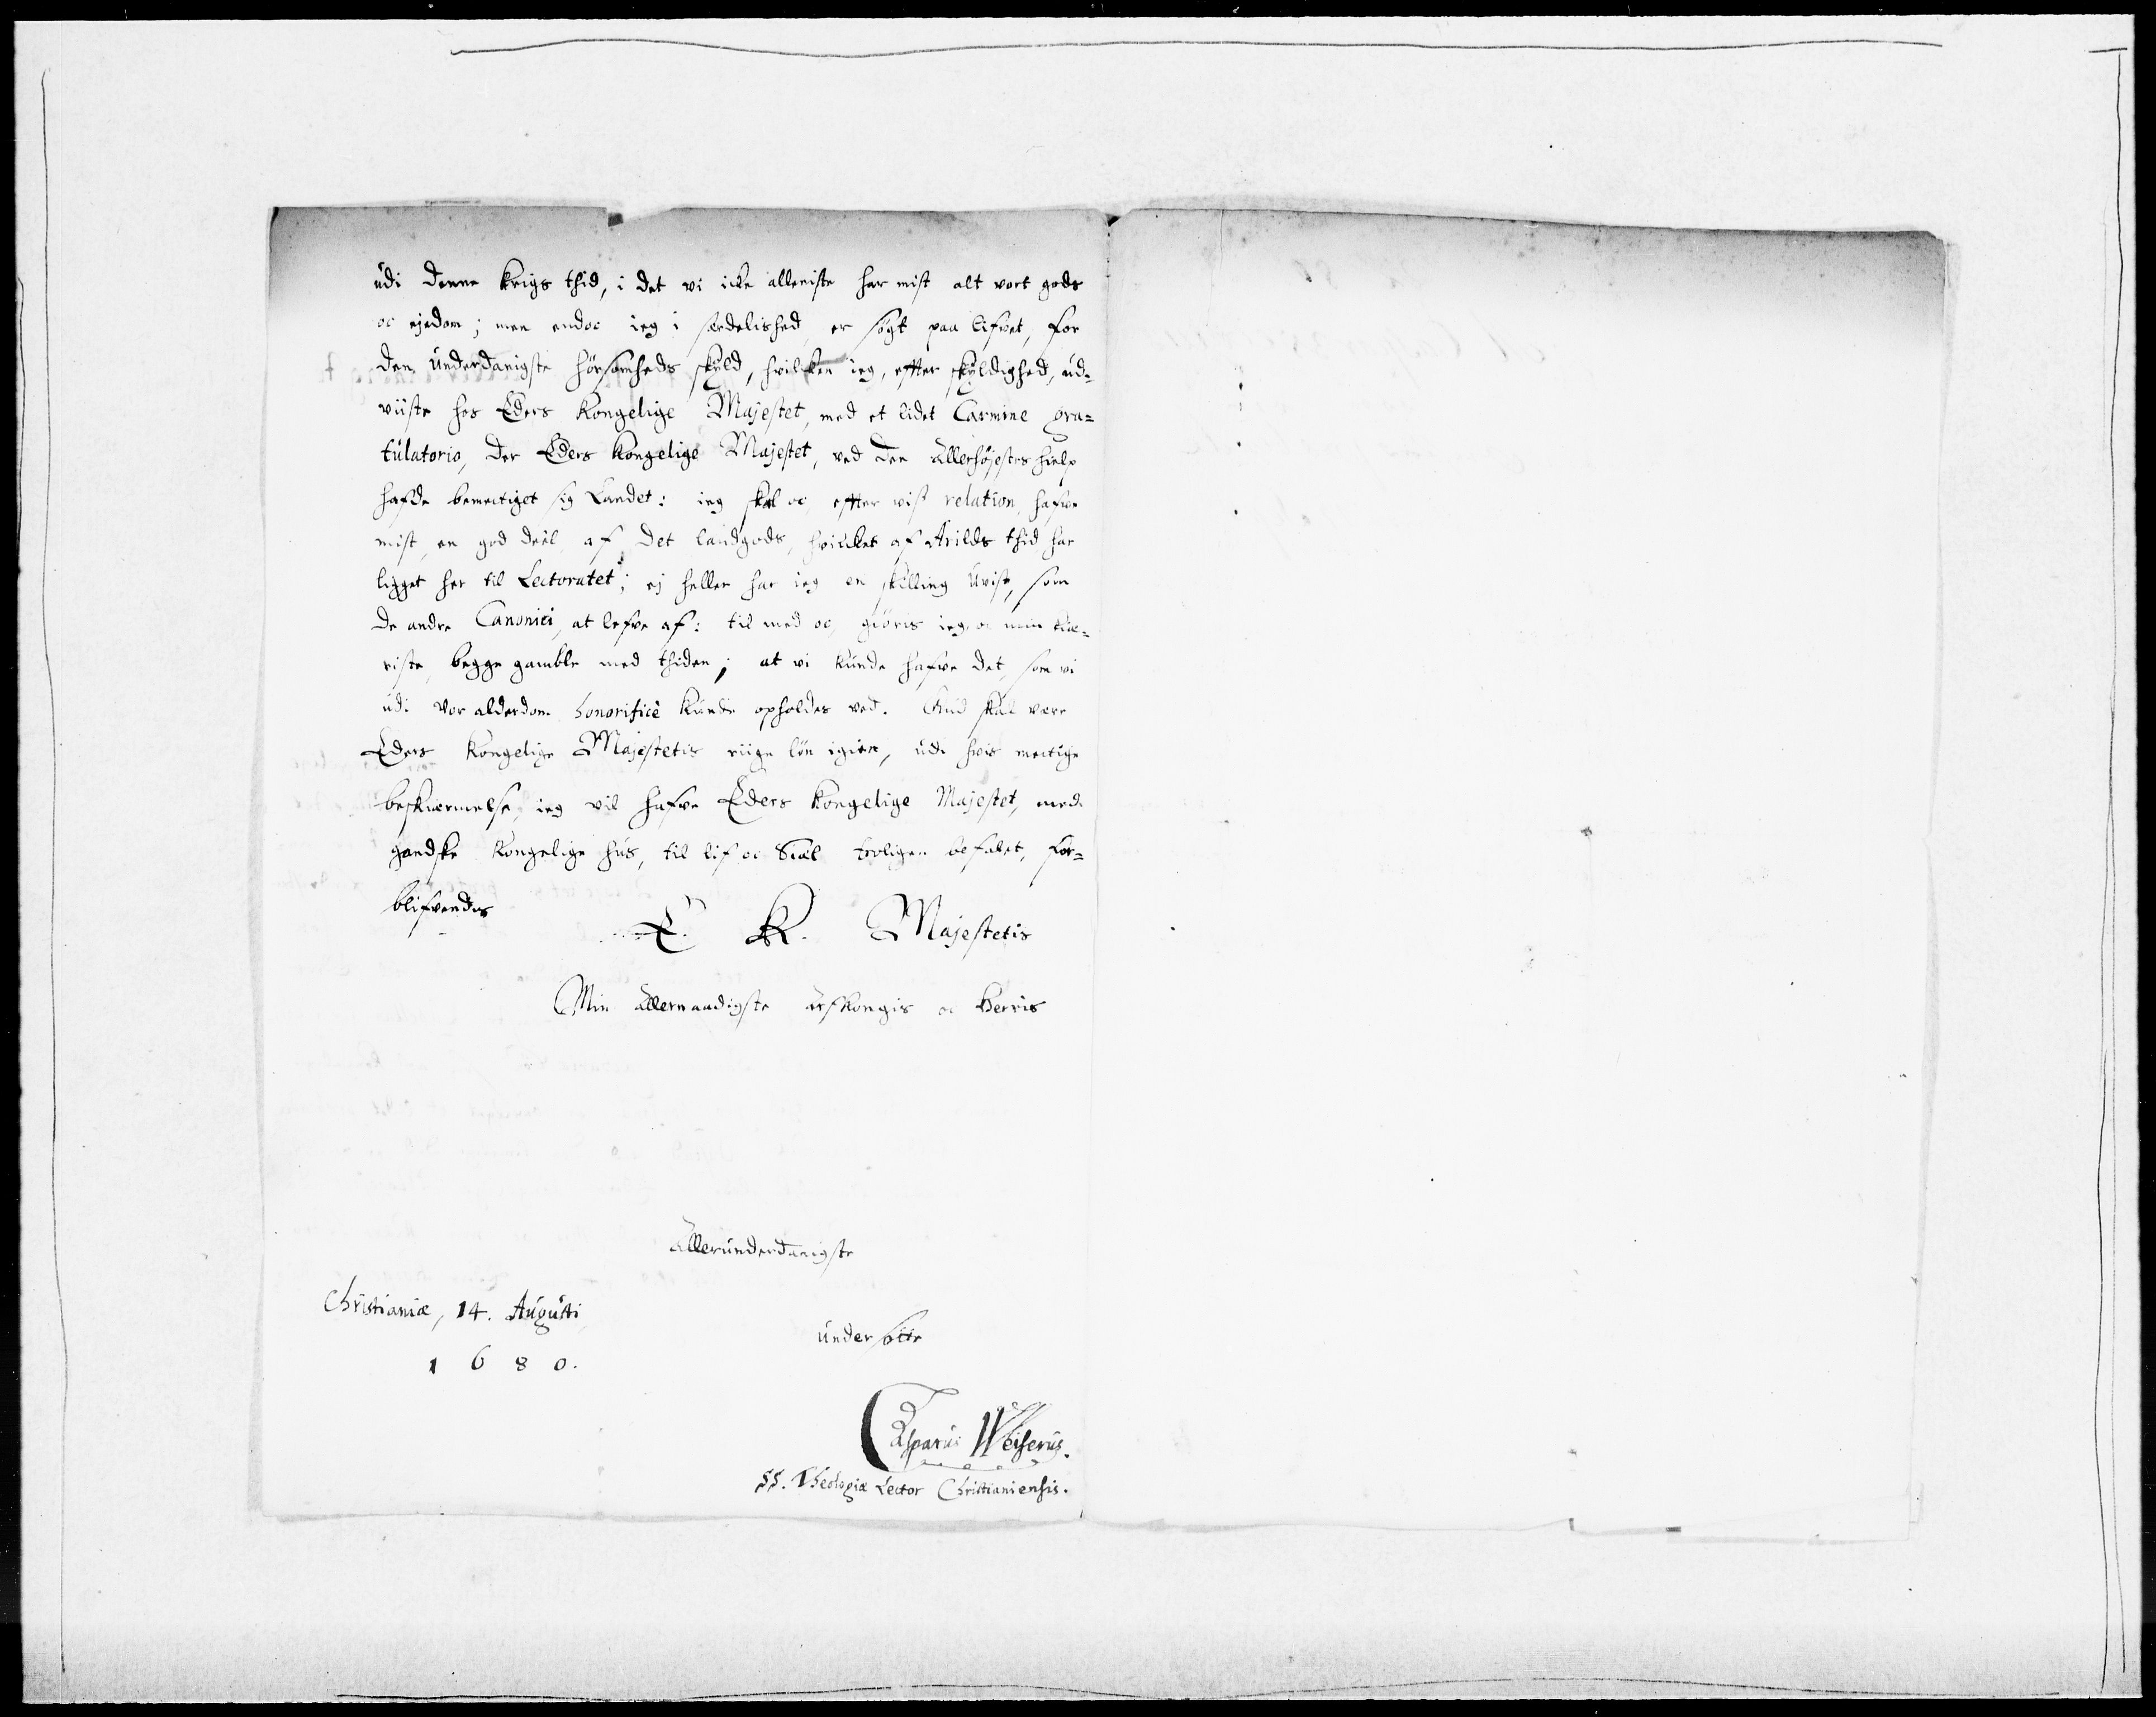 udi denne krigs thid, i det vi icke alleniste har mist alt vort gods
oc ejedom; men endoc ieg i særdelished, er søgt paa lifvet, for
den underdanigste hørsomheds skyld, hvilken ieg, efter skyldighed, ud-
viiste hos Eders Kongelige Majestet, med et lidet Carmine gra-
tulatorio, der Eders Kongelige Majestet, ved den Allerhøjestes hielp
hafde bemectiget sig Landet: ieg skal oc, efter vist relation, hafve
mist, en god deel, af det landgods, hvilket af Arilds thid har
ligget her til Lectoratet; ej heller har ieg en skilling uvist, som
de andre Canonici, at lefve af: til med oc, giöris ieg, oc min kiæ-
riste, begge gamble med thiden; at vi kunde hafve det, som vi
udi vor alderdom honorificè kunde opholdes ved. Gud skal være
Eders Kongelige Majestetis riige løn igien, udi hvis mectige
beskiermelse, ieg vil hafve Eders Kongelige Majestet, med
gandske Kongelige hus, til lif oc Siæl troligen befalet, for-
blifvendes
E. K. Majestetis
Min Allernaadigste Arfkongis oc Herris
Allerunderdanigste
Christianiæ, 14. Augusti
undersotte
1680.
Casparus Weiserus.
SS. Theologiæ Lector Christianiensis.